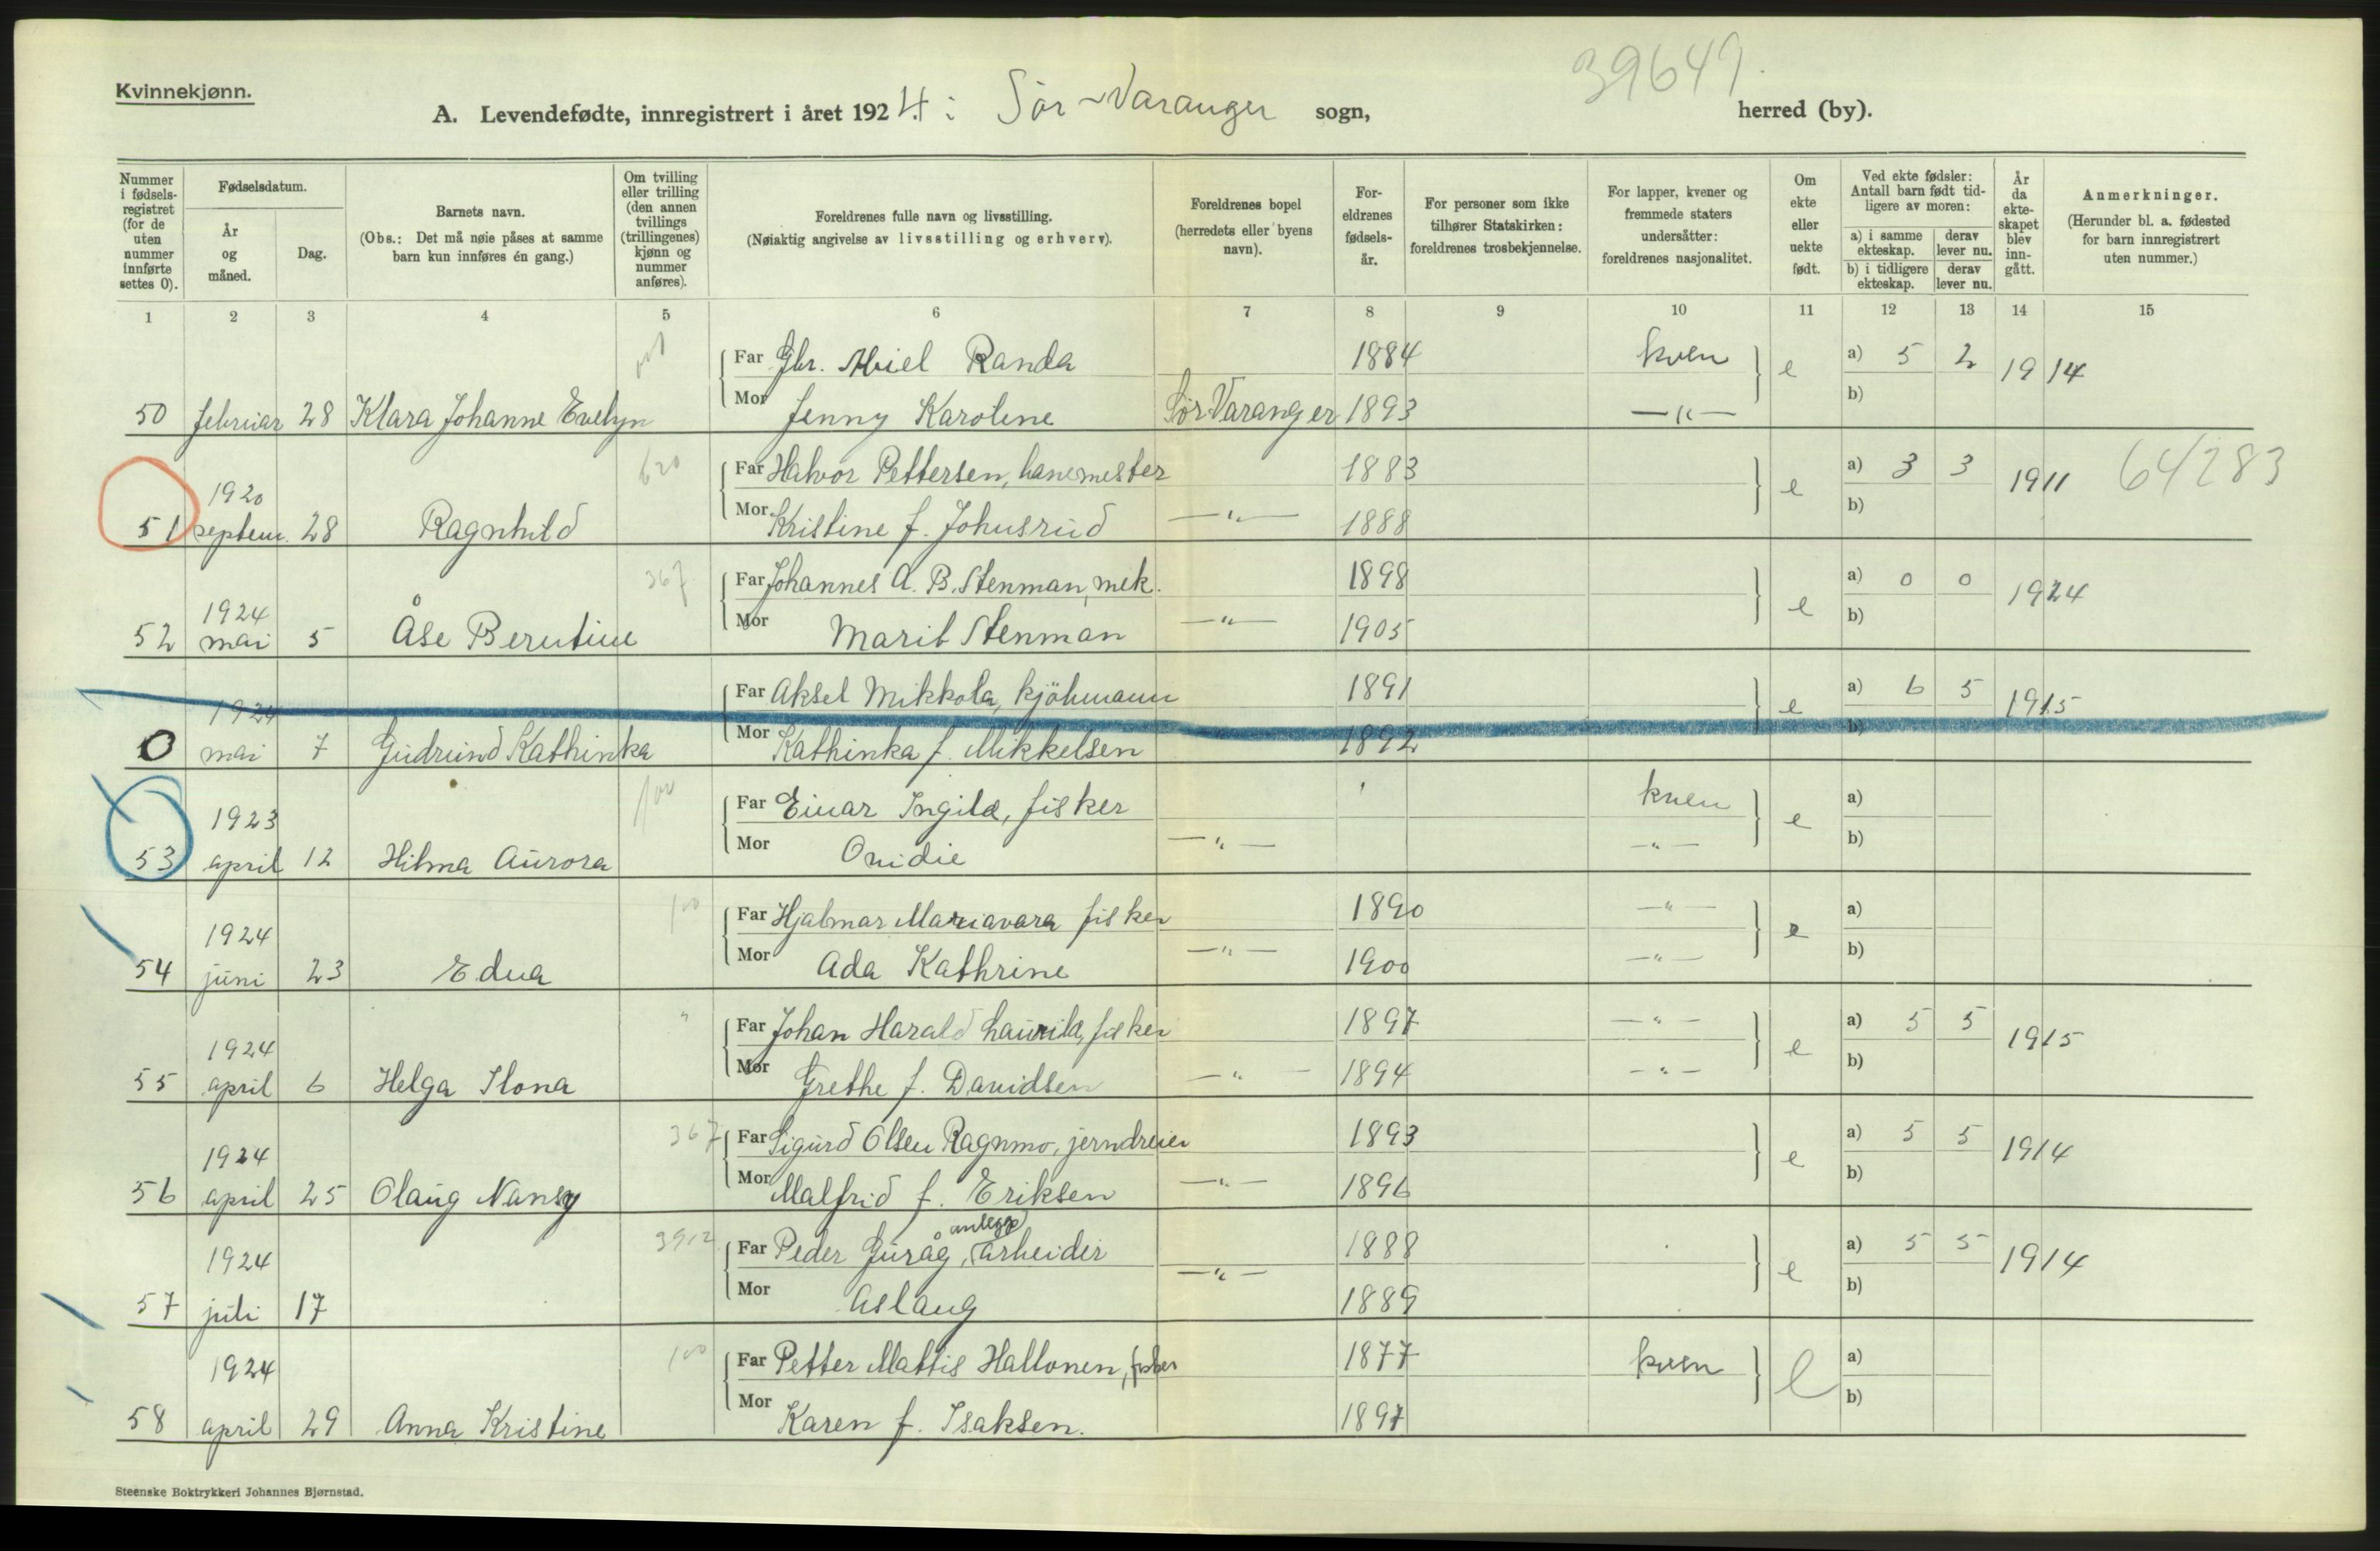 Kvinnekjønn.
39649.
A. Levendefødte, innregistrert i året 1924: Sör-Varanger sogn, herred (by).
Nummer i fødselsregistret (for de uten nummer innførte settes 0).
Fødselsdatum.
År og måned.
Dag.
Barnets navn.
(Obs.: Det må nøie påses at samme barn kun innføres én gang.)
Om tvilling eller trilling (den annen tvillings (trillingenes) kjønn og nummer anføres).
Foreldrenes fulle navn og livsstilling.
(Nøiaktig angivelse av livsstilling og erhverv).
Foreldrenes bopel (herredets eller byens navn).
Foreldrenes fødselsår.
For personer som ikke tilhører Statskirken: foreldrenes trosbekjennelse.
For lapper, kvener og fremmede staters undersåtter: foreldrenes nasjonalitet.
Om ekte eller uekte født.
Ved ekte fødsler: Antall barn født tidligere av moren:
a) i samme ekteskap. derav lever nu.
b) i tidligere ekteskap. derav lever nu.
År da ekteskapet blev inngått.
Anmerkninger.
(Herunder bl. a. fødested for barn innregistrert uten nummer.)
1 2 3 4 5 6 7 8 9 10 11 12 13 14 15
Far Gbr. Randa 1884 kven e a) 5 2 1914
50 februar 28 Klara Johanne Evelyn Mor Jenny Karolene Sör Varanger 1893 —"— b)
1920 620 Far Halvor Pettersen, 1883 e a) 3 3 1911 64283
51 septem. 28 Ragnhild Mor Kristine f. Johnsrud —"— 1888 b)
1924 367 Far Johannes A. B. Stenman, mek. 1898 e a) 0 0 1924
52 mai 5 Åse Berntine Mor Marit Stenman —"— 1905 b)
1924 Far Aksel Mikkola, kjöbmann 1891 e a) 6 5 1915
0 mai 7 Gudrund Kathinka Mor Kathinka f. Mikkelsen 1892 b)
1923 100 Far Einar Ingilæ, fisker kven e a)
53 april 12 Hilma Aurora Mor Ovidie —"— —"— b)
1924 100 Far Hjalmar Mariavara fisker 1890 —"— e a)
54 juni 23 Edna Mor Ada Kathrine —"— 1900 —"— b)
1924 " Far Johan Harald Laurila, fisker 1897 —"— e a) 5 5 1915
55 april 6 Helga Ilona Mor Grethe f. Davidsen —"— 1894 —"— b)
1924 367 Far Sigurd Olsen Ragnmo, jerndreier 1893 e a) 5 5 1914
56 april 25 Olaug Nansy Mor Malfrid f. Eriksen —"— 1896 b)
1924 3912 Far Peder Guråg, anleggsarbeider 1888 e a) 5 5 1914
57 juli 17 Mor Aslaug —"— 1889 b)
1924 100 Far Petter Mattis Hallonen, fisker 1877 kven e a)
58 april 29 Anna Kristine Mor Karen f. Isaksen. 1897 b)
Steenske Boktrykkeri Johannes Bjørnstad.